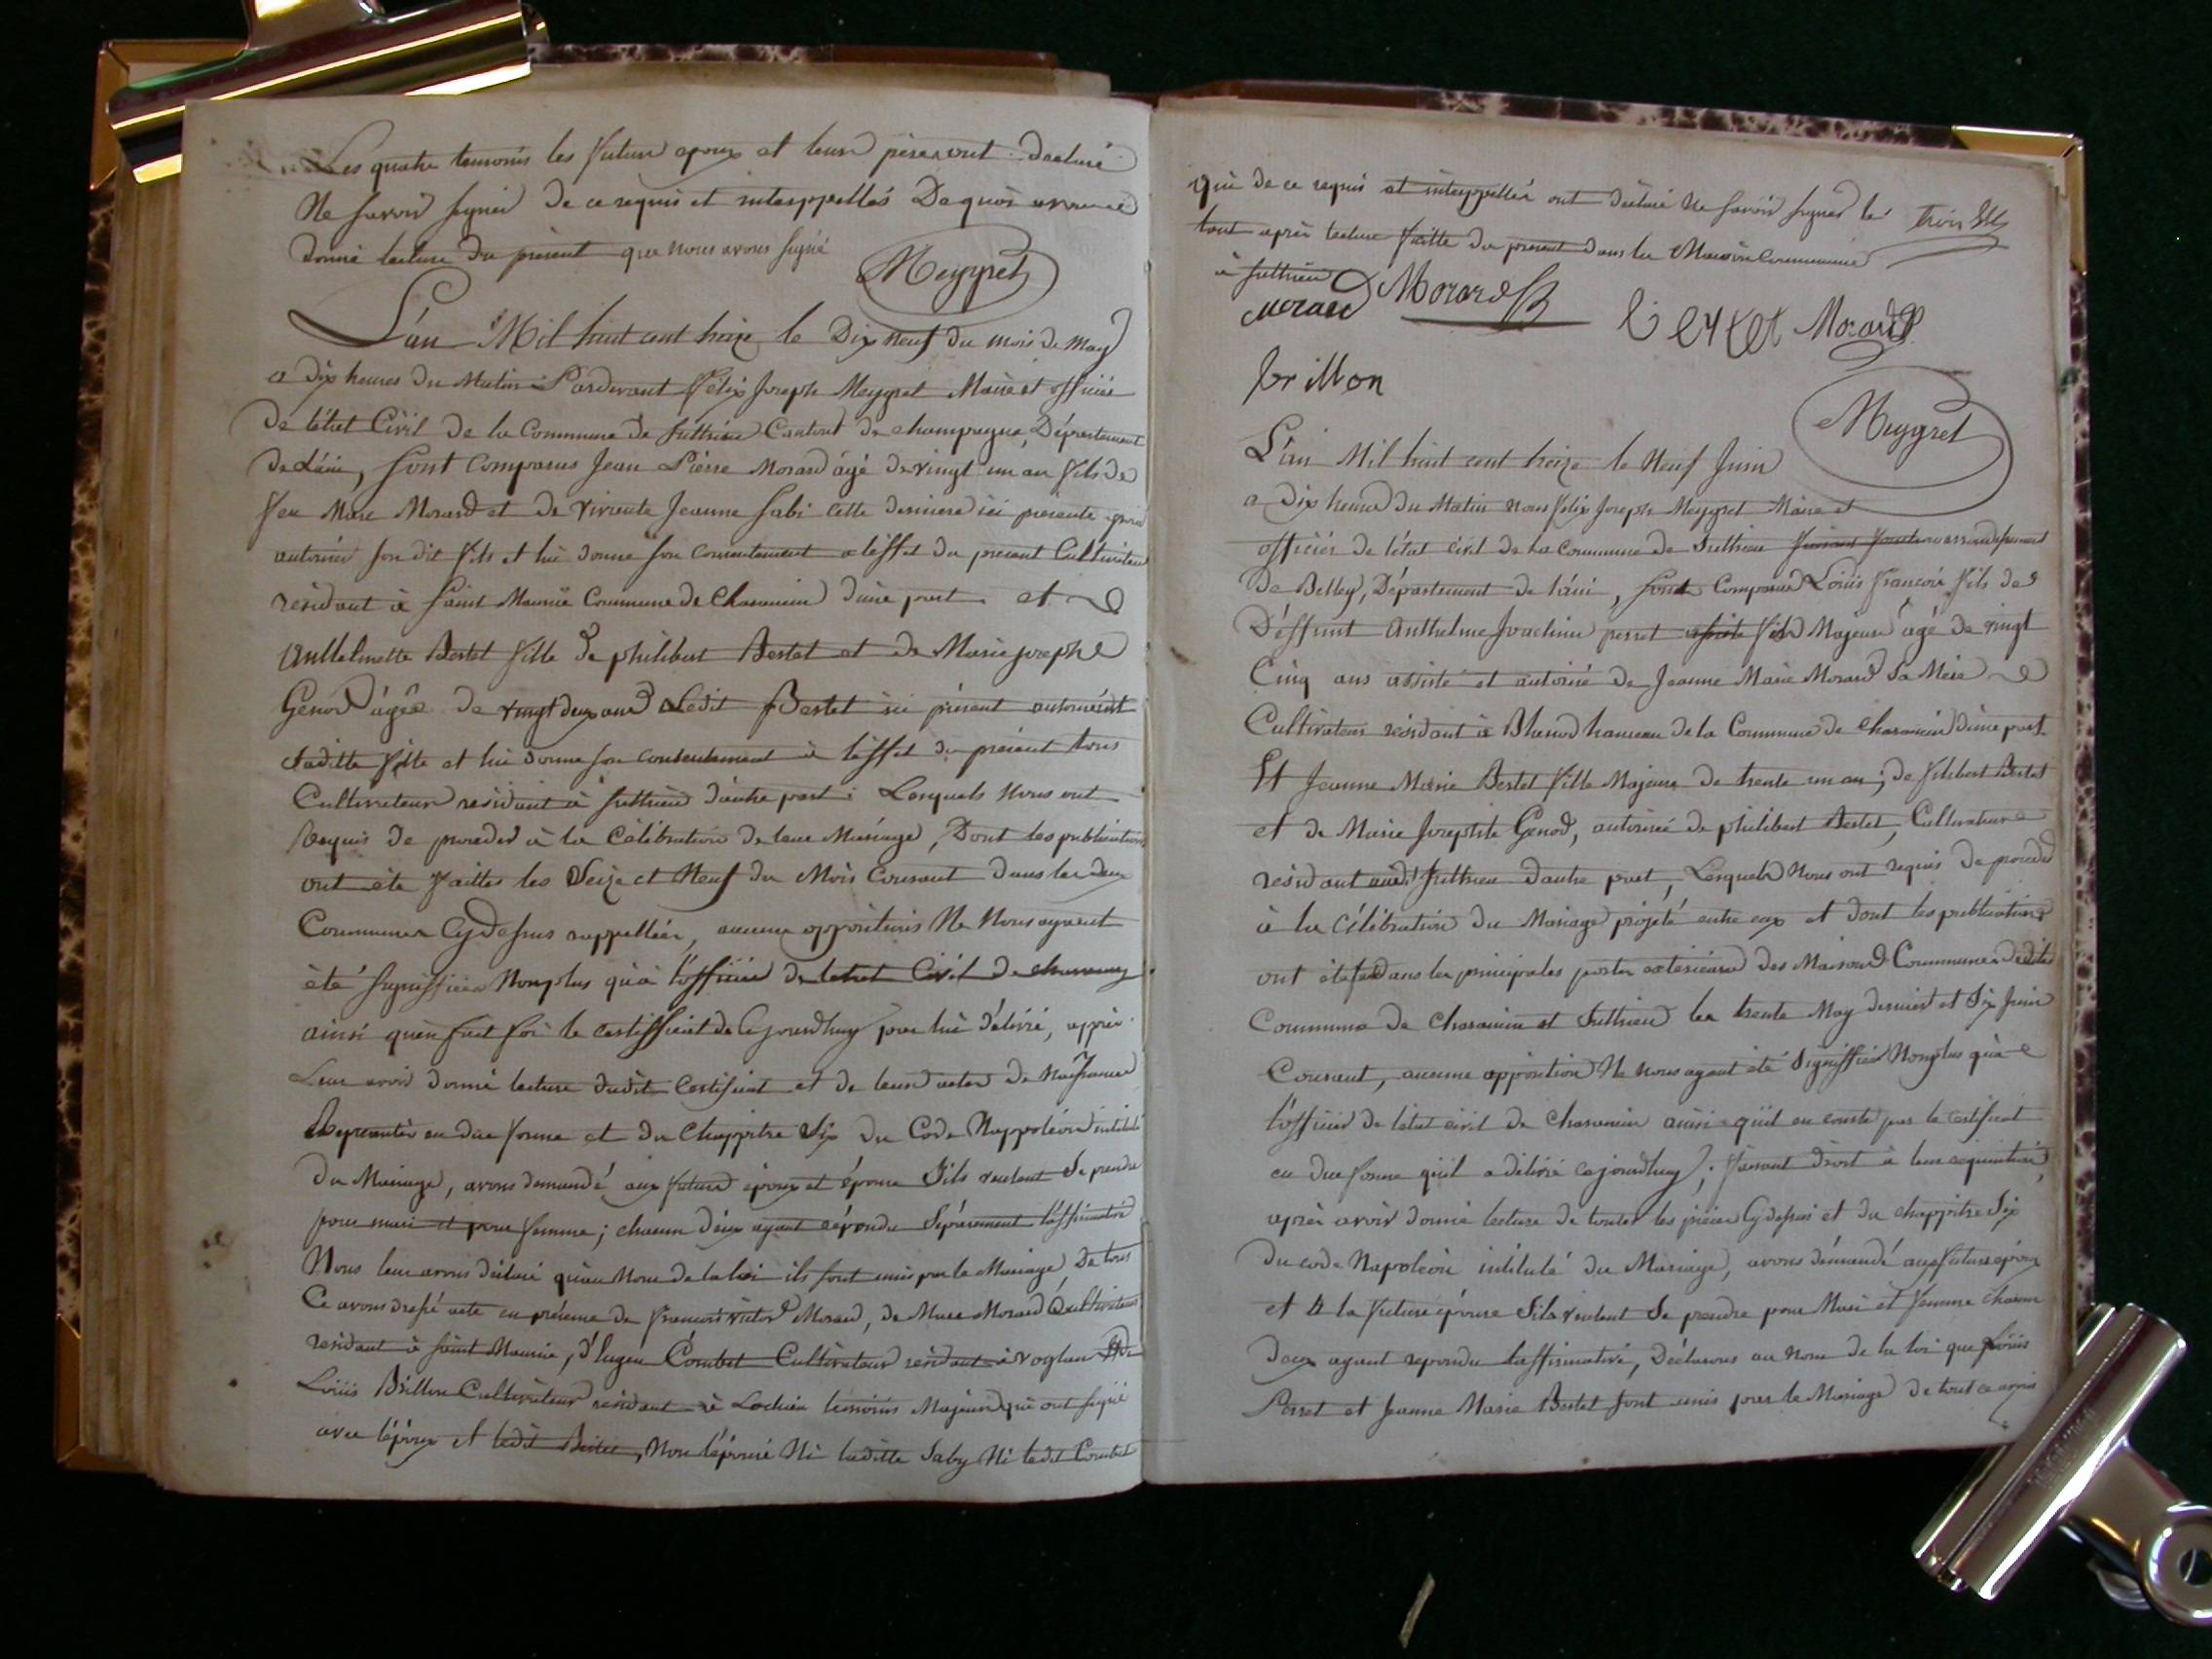 Les quatre temoins les futurs epoux et leurs peres ont declaré
Ne savoir signer de ce requis et interppellés De quoi avons
donné lecture du présent que nous avons signé
Meygret
L'an Mil huit cent treize le Dix neuf du mois de May
a dix heures du Matin Pardevant Félix Joseph Meygret Maire et officier
de l'état Civil de la Commune de Suthrieu Canton de champagne, Département
de L'ain, sont comparus Jean Pierre Morard âgé de vingt un an fils de
feu Marc Morard et de vivante Jeanne Sabi cette derniere ici presente pour
autoriser son dit fils et lui donne son consentement a l'effet du présent Cultivateur
résidant à Saint Maurice Commune de Charancin d'une part et
Anthelmette Bertet fille de philibert Bertet et de Marie josephe
Genod âgée de vingt deux ans Ledit Bertet ici présent autorisant
saditte fille et lui donne son consentement à l'effet du présent tous
Cultivateurs résidant à suthrieu d'autre part : Lesquels Nous ont
Requis de proceder à la Célébration de leur Mariage, Dont les publications
ont été faittes les Seize et Neuf du Mois Courant dans les deux
Communes Cydessus rappellées, aucune oppositions Ne Nous ayant
été signiffiée Nomplus qu'à l'officier de l'etat Civil de
ainsi qu'en fait foi le certifficat de Cejourdhuy par lui délivré, après
Leur avoir donné lecture dudit Certificat et de leurs actes de Naissance
Représentés en due forme et du Chappitre Six du Code Nappoléon intitulé
du Mariage, avons demandé aux futurs époux et épouse S'ils veulent Se prendre
pour mari et pour femme ; chacun d'eux ayant répondu Séparement l'affirmative
Nous leur avons déclaré qu'au Nom de la loi ils sont unis par le Mariage, De tous
Ce avons dressé acte en présence de François victor Morard, de Marc Morard Cultivateurs
résidant à saint Maurice, d'Eugene Combet Cultivateur résidant à voglan et de
Loüis Brillon Cultivateur résidant à Lochieu temoins Majeurs qui ont signé
avec l'époux et ledit Bertet, Non l'épouse Ni laditte Saby Ni ledit Combet
qui de ce requis et interppellés ont déclaré Ne savoir signer le
tout après lecture faitte du présent dans la Maison Commune
à suthrieu
Morard Morard Morard
brillon
Meygret
L'an Mil huit cent treize le Neuf Juin
a dix heures du Matin nous félix Joseph Meygret Maire et
officier de l'état civil de la Commune de Suthrieu arrondissement
de Belley, Département de l'ain, sont Comparus Loüis François fils de
Déffunt Anthelme Joachim perret fils Majeur âgé de vingt
Cinq ans assisté et autorisé de Jeanne Marie Morard Sa Mère
Cultivateur résidant à hameau de la Commune de Charancin d'une part.
Et Jeanne Marie Bertet fille Majeure de trente un an ; de filibert Bertet
et de Marie Josephte Genod, autorisée de philibert Bertet, Cultivateur
résidant audit suthrieu d'autre part, Lesquels Nous ont requis de proceder
à la Célébration du Mariage projeté entre eux et dont les publications
ont été dans les principales portes exterieures des Maisons Communes desdites
Communes de Charancin et Suthrieu les trente May dernier et Six Juin
Courant, aucune opposition Ne nous ayant été Signiffiée Nomplus qu'à
l'officier de l'état civil de Charancin ainsi qu'il en conste par le certificat
en due forme qu'il a délivré cejourdhuy ; faisant droit à leur réquisition,
après avoir donné lecture de toutes les pieces Cydessus et du chappitre Six
du code Napoléon intitulé du Mariage, avons démandé au futur époux
et à la future épouse S'ils veulent Se prendre pour Mari et femme chacun
d'eux ayant repondu l'affirmative, Déclarons au Nom de la loi que Loüis
Perret et Jeanne Marie Bertet sont unis par le Mariage de tout ce avons